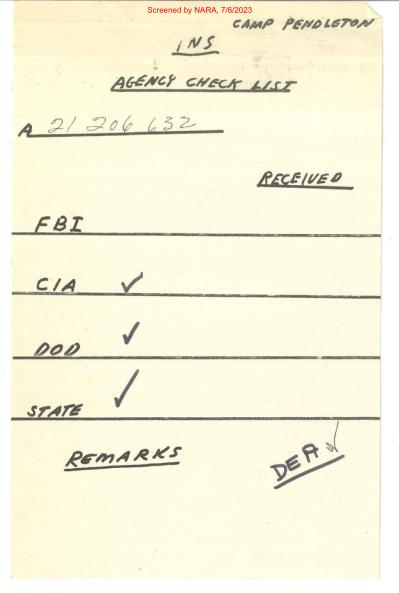 Screened by NARA, 7/6/2023
CAMP PENDLETON
INS
AGENCY CHECK LIST
A 21 206 632
RECEIVED
FBI
CIA ✓
DOD ✓
STATE ✓
REMARKS
DEA ✓